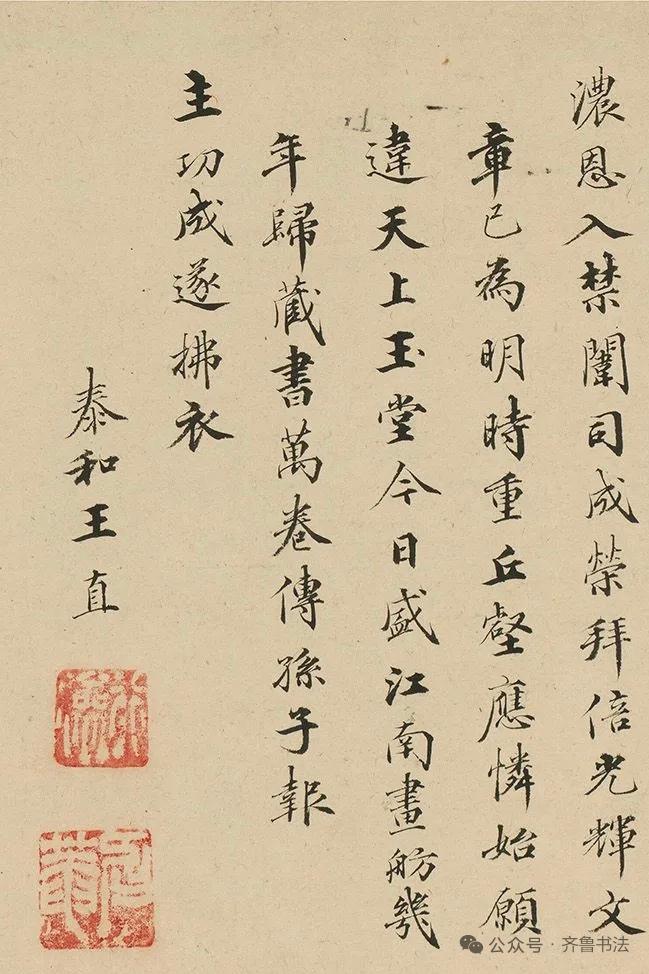 濃恩入禁闈同成榮拜倍光輝文
章已為明時重丘壑應憐始願
違天上玉堂今日盛江南畫舫幾
年歸藏書萬卷傳孫子報
主功成遂拂衣
泰和王直
公众号·齐鲁书法